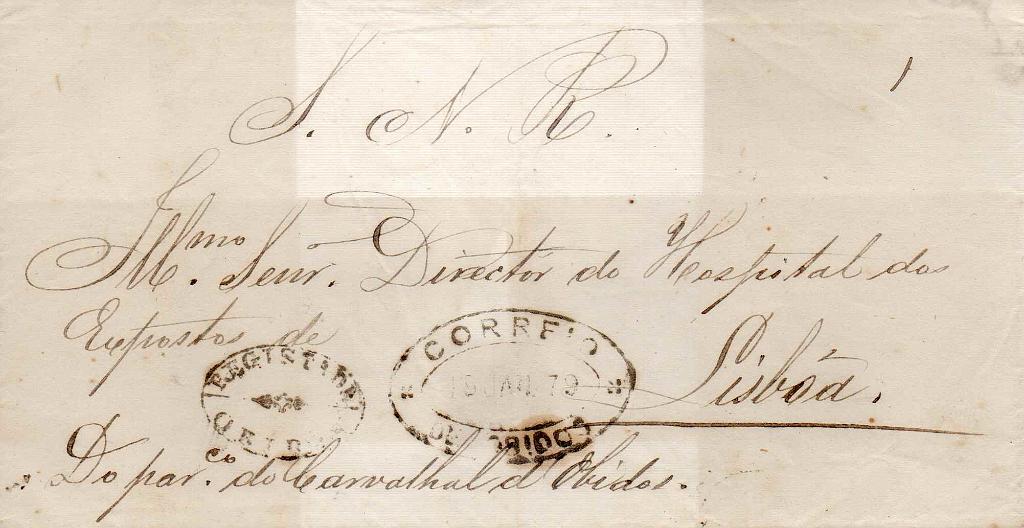 S. N. R.
Illmo. Senr. Director do Hospital dos
Expostos de
Lisbôa.
CORREIO
15 JAN. 79
DE OBIDOS
REGISTADO
OBIDOS
Do par.co do Carvalhal d'Obidos.